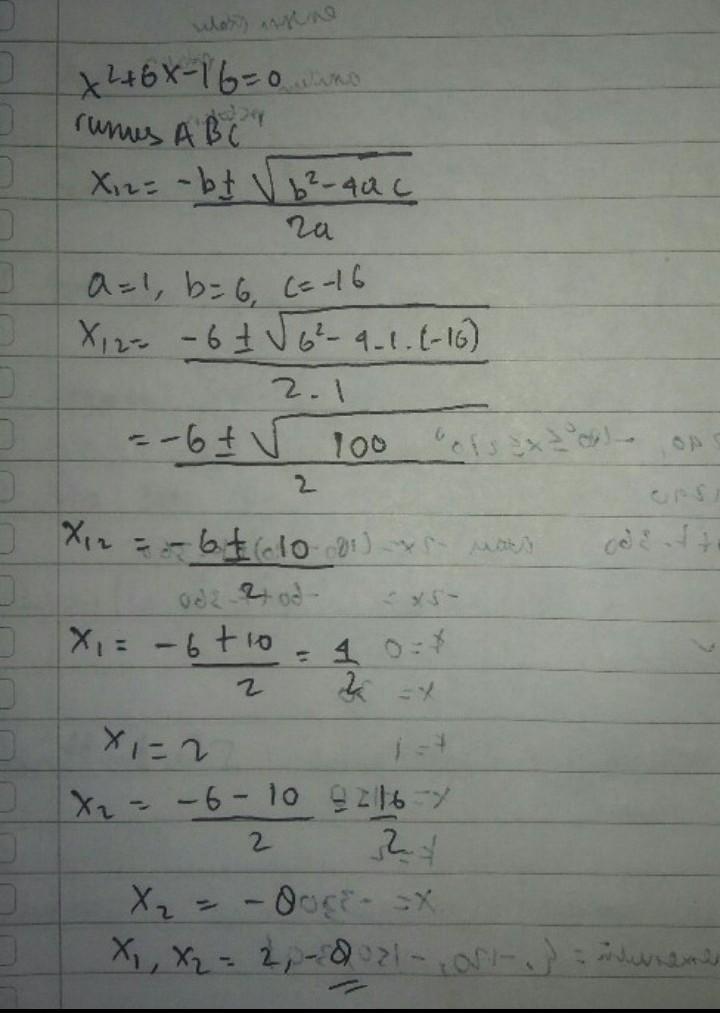 x²+6x-16=0
rumus ABC
x₁₂= -b±√b²-4ac
2a
a=1, b=6, c=-16
x₁₂= -6±√6²-4.1.(-16)
2.1
= -6±√100
2
x₁₂ = -6±10
2
x₁ = -6+10 = 4
2 2
x₁=2
x₂ = -6-10 = -16
2 2
x₂ = -8
x₁, x₂ = 2, -8